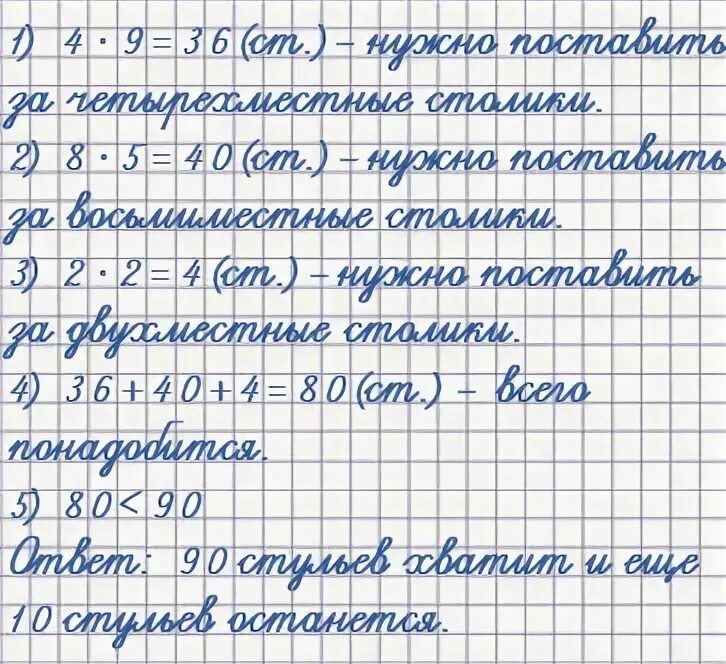 1) 4 · 9 = 36 (ст.) – нужно поставить
за четырехместные столики.
2) 8 · 5 = 40 (ст.) – нужно поставить
за восьмиместные столики.
3) 2 · 2 = 4 (ст.) – нужно поставить
за двухместные столики.
4) 36 + 40 + 4 = 80 (ст.) – всего
понадобится.
5) 80 < 90
Ответ: 90 стульев хватит и еще
10 стульев останется.